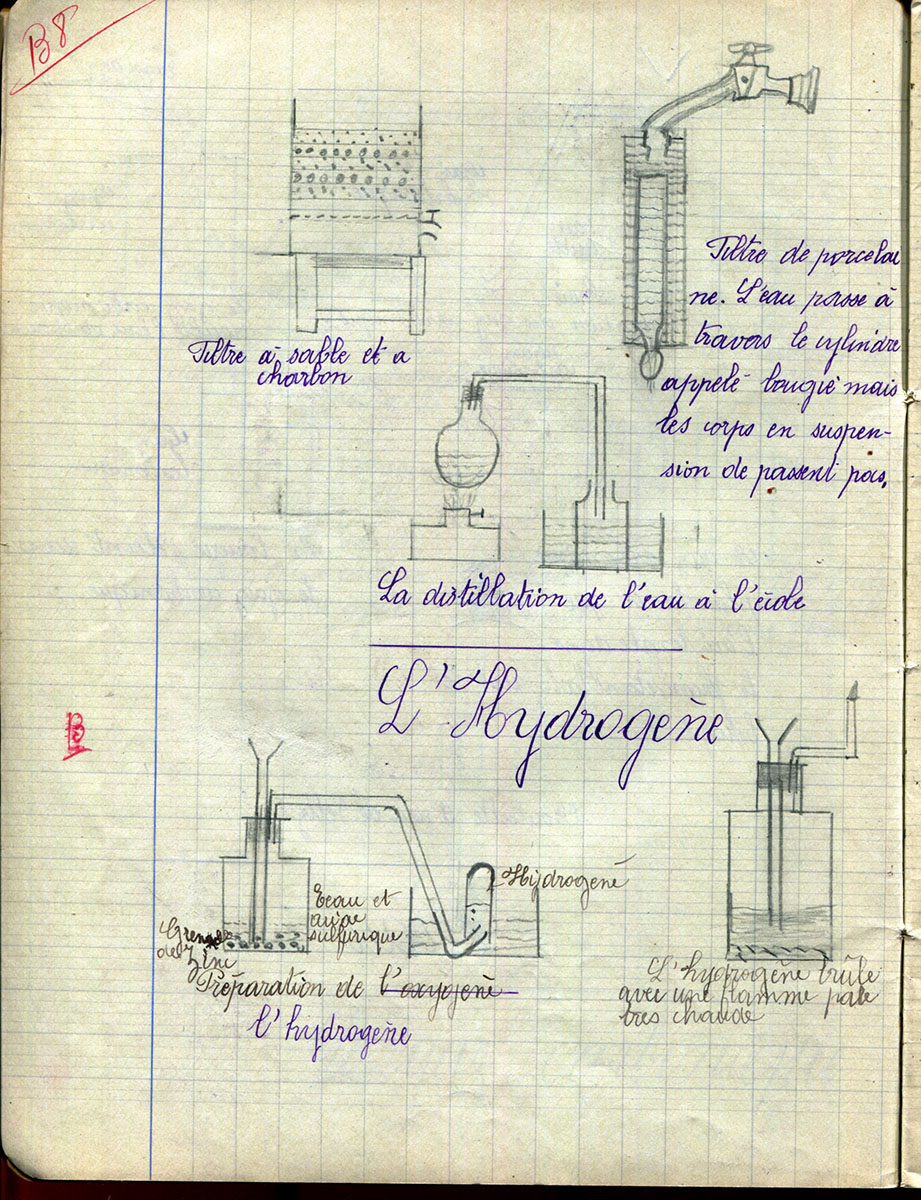 B 8
Filtre de porcelai
ne. L'eau passe à
travers le cylindre
appelé bougie mais
les corps en suspen-
sion de passent pas.
Filtre à sable et a
charbon
La distillation de l'eau à l'école
L'Hydrogène
B
Hydrogène
Eeau et
acide
sulfurique
Grenade
de Zinc
Préparation de l'oxygène
l'hydrogène
L'hydrogène brûle
avec une flamme pale
très chaude